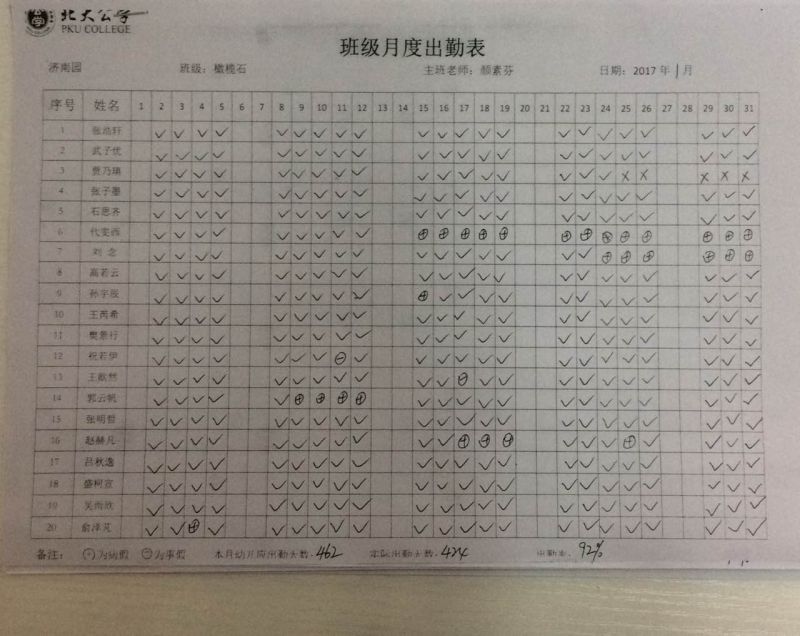 北大公学
PKU COLLEGE
班级月度出勤表
济南园 班级：橄榄石 主班老师：颜素芬 日期：2017 年 1 月
序号 姓名 1 2 3 4 5 6 7 8 9 10 11 12 13 14 15 16 17 18 19 20 21 22 23 24 25 26 27 28 29 30 31
1 张浩轩 ✓ ✓ ✓ ✓ ✓ ✓ ✓ ✓ ✓ ✓ ✓ ✓ ✓ ✓ ✓ ✓ ✓ ✓ ✓ ✓ ✓ ✓
2 武子优 ✓ ✓ ✓ ✓ ✓ ✓ ✓ ✓ ✓ ✓ ✓ ✓ ✓ ✓ ✓ ✓ ✓ ✓ ✓ ✓ ✓ ✓
3 贾乃瑞 ✓ ✓ ✓ ✓ ✓ ✓ ✓ ✓ ✓ ✓ ✓ ✓ ✓ ✓ ✓ ✓ ✓ × × × × ×
4 张子墨 ✓ ✓ ✓ ✓ ✓ ✓ ✓ ✓ ✓ ✓ ✓ ✓ ✓ ✓ ✓ ✓ ✓ ✓ ✓ ✓ ✓ ✓
5 石思齐 ✓ ✓ ✓ ✓ ✓ ✓ ✓ ✓ ✓ ✓ ✓ ✓ ✓ ✓ ✓ ✓ ✓ ✓ ✓ ✓ ✓ ✓
6 代 西 ✓ ✓ ✓ ✓ ✓ ✓ ✓ ✓ ✓ ⊕ ⊕ ⊕ ⊕ ⊕ ⊕ ⊕ ⊕ ⊕ ⊕ ⊕ ⊕ ⊕
7 刘 念 ✓ ✓ ✓ ✓ ✓ ✓ ✓ ✓ ✓ ✓ ✓ ✓ ✓ ✓ ✓ ✓ ⊕ ⊕ ⊕ ⊕ ⊕ ⊕
8 高若云 ✓ ✓ ✓ ✓ ✓ ✓ ✓ ✓ ✓ ✓ ✓ ✓ ✓ ✓ ✓ ✓ ✓ ✓ ✓ ✓ ✓ ✓
9 孙宇辰 ✓ ✓ ✓ ✓ ✓ ✓ ✓ ✓ ✓ ⊕ ✓ ✓ ✓ ✓ ✓ ✓ ✓ ✓ ✓ ✓ ✓ ✓
10 王芮希 ✓ ✓ ✓ ✓ ✓ ✓ ✓ ✓ ✓ ✓ ✓ ✓ ✓ ✓ ✓ ✓ ✓ ✓ ✓ ✓ ✓ ✓
11 樊景行 ✓ ✓ ✓ ✓ ✓ ✓ ✓ ✓ ✓ ✓ ✓ ✓ ✓ ✓ ✓ ✓ ✓ ✓ ✓ ✓ ✓ ✓
12 祝若伊 ✓ ✓ ✓ ✓ ✓ ✓ ✓ ⊖ ✓ ✓ ✓ ✓ ✓ ✓ ✓ ✓ ✓ ✓ ✓ ✓ ✓ ✓
13 王歆然 ✓ ✓ ✓ ✓ ✓ ✓ ✓ ✓ ✓ ✓ ✓ ⊖ ✓ ✓ ✓ ✓ ✓ ✓ ✓ ✓ ✓ ✓
14 郭云帆 ✓ ✓ ✓ ✓ ✓ ⊕ ⊕ ⊕ ⊕ ✓ ✓ ✓ ✓ ✓ ✓ ✓ ✓ ✓ ✓ ✓ ✓ ✓
15 张明哲 ✓ ✓ ✓ ✓ ✓ ✓ ✓ ✓ ✓ ✓ ✓ ✓ ✓ ✓ ✓ ✓ ✓ ✓ ✓ ✓ ✓ ✓
16 赵赫凡 ✓ ✓ ✓ ✓ ✓ ✓ ✓ ✓ ✓ ✓ ✓ ⊕ ⊕ ⊕ ✓ ✓ ✓ ⊕ ✓ ✓ ✓ ✓
17 吕秋逸 ✓ ✓ ✓ ✓ ✓ ✓ ✓ ✓ ✓ ✓ ✓ ✓ ✓ ✓ ✓ ✓ ✓ ✓ ✓ ✓ ✓ ✓
18 盛柯宣 ✓ ✓ ✓ ✓ ✓ ✓ ✓ ✓ ✓ ✓ ✓ ✓ ✓ ✓ ✓ ✓ ✓ ✓ ✓ ✓ ✓ ✓
19 吴雨欣 ✓ ✓ ✓ ✓ ✓ ✓ ✓ ✓ ✓ ✓ ✓ ✓ ✓ ✓ ✓ ✓ ✓ ✓ ✓ ✓ ✓ ✓
20 俞泽芃 ✓ ✓ ⊕ ✓ ✓ ✓ ✓ ✓ ✓ ✓ ✓ ✓ ✓ ✓ ✓ ✓ ✓ ✓ ✓ ✓ ✓ ✓
备注： ⊕为病假 ⊖为事假 本月幼儿应出勤天数：462 实际出勤天数：424 出勤率：92%